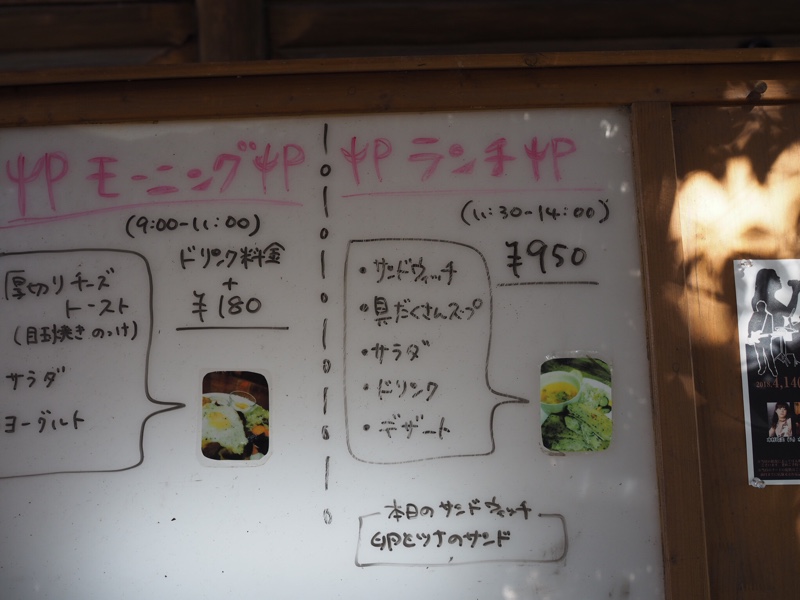 モーニング
(9:00-11:00)
厚切りチーズ
トースト
(目玉焼きのっけ)
サラダ
ヨーグルト
ドリンク料金
+
¥180
ランチ
(11:30-14:00)
¥950
・サンドウィッチ
・具だくさんスープ
・サラダ
・ドリンク
・デザート
本日のサンドウィッチ
卵とツナのサンド